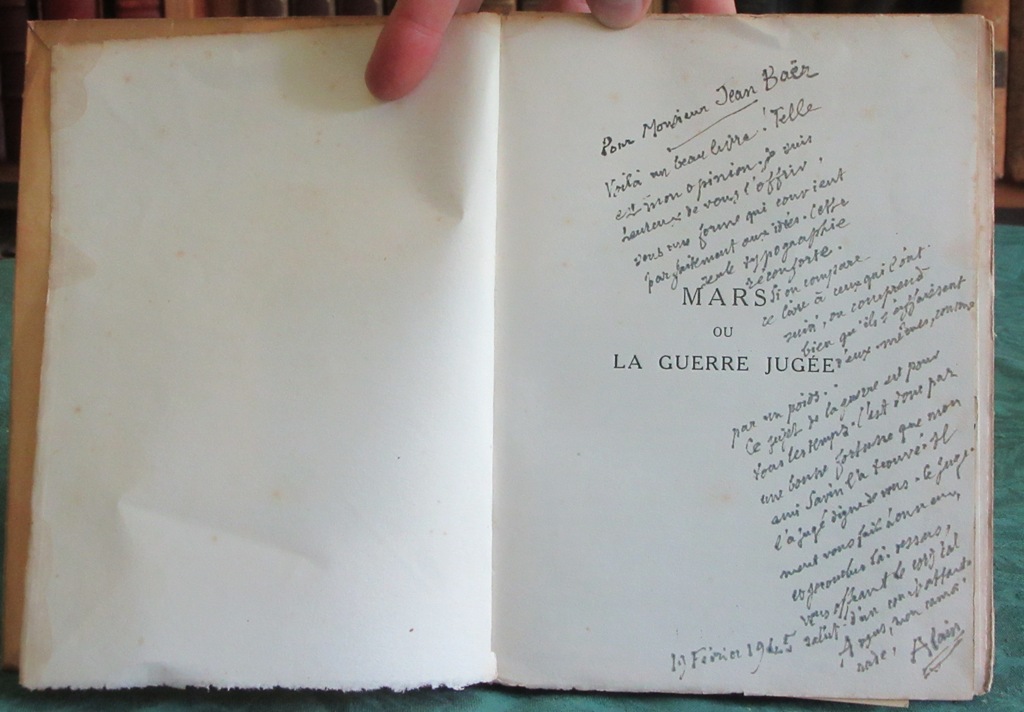 Pour Monsieur Jean Baër
Voilà un beau livre! Telle
est mon opinion. Je suis
heureux de vous l'offrir,
sous une forme qui convient
parfaitement aux idées. Cette
seule typographie
réconforte.
Si on compare
ce livre à ceux qui l'ont
suivi, on comprend
bien qu'ils s'effacent
d'eux-mêmes, comme
MARS
OU
LA GUERRE JUGÉE
par un poids.
Ce sujet de la guerre est pour
tous les temps. C'est donc par
une bonne fortune que mon
ami Savin l'a trouvé. Il
l'a jugé digne de vous. Ce juge-
ment vous fait honneur,
vous offrant le
salut d'un combattant.
A vous, mon cama-
rade,
Alain
19 Février 1945